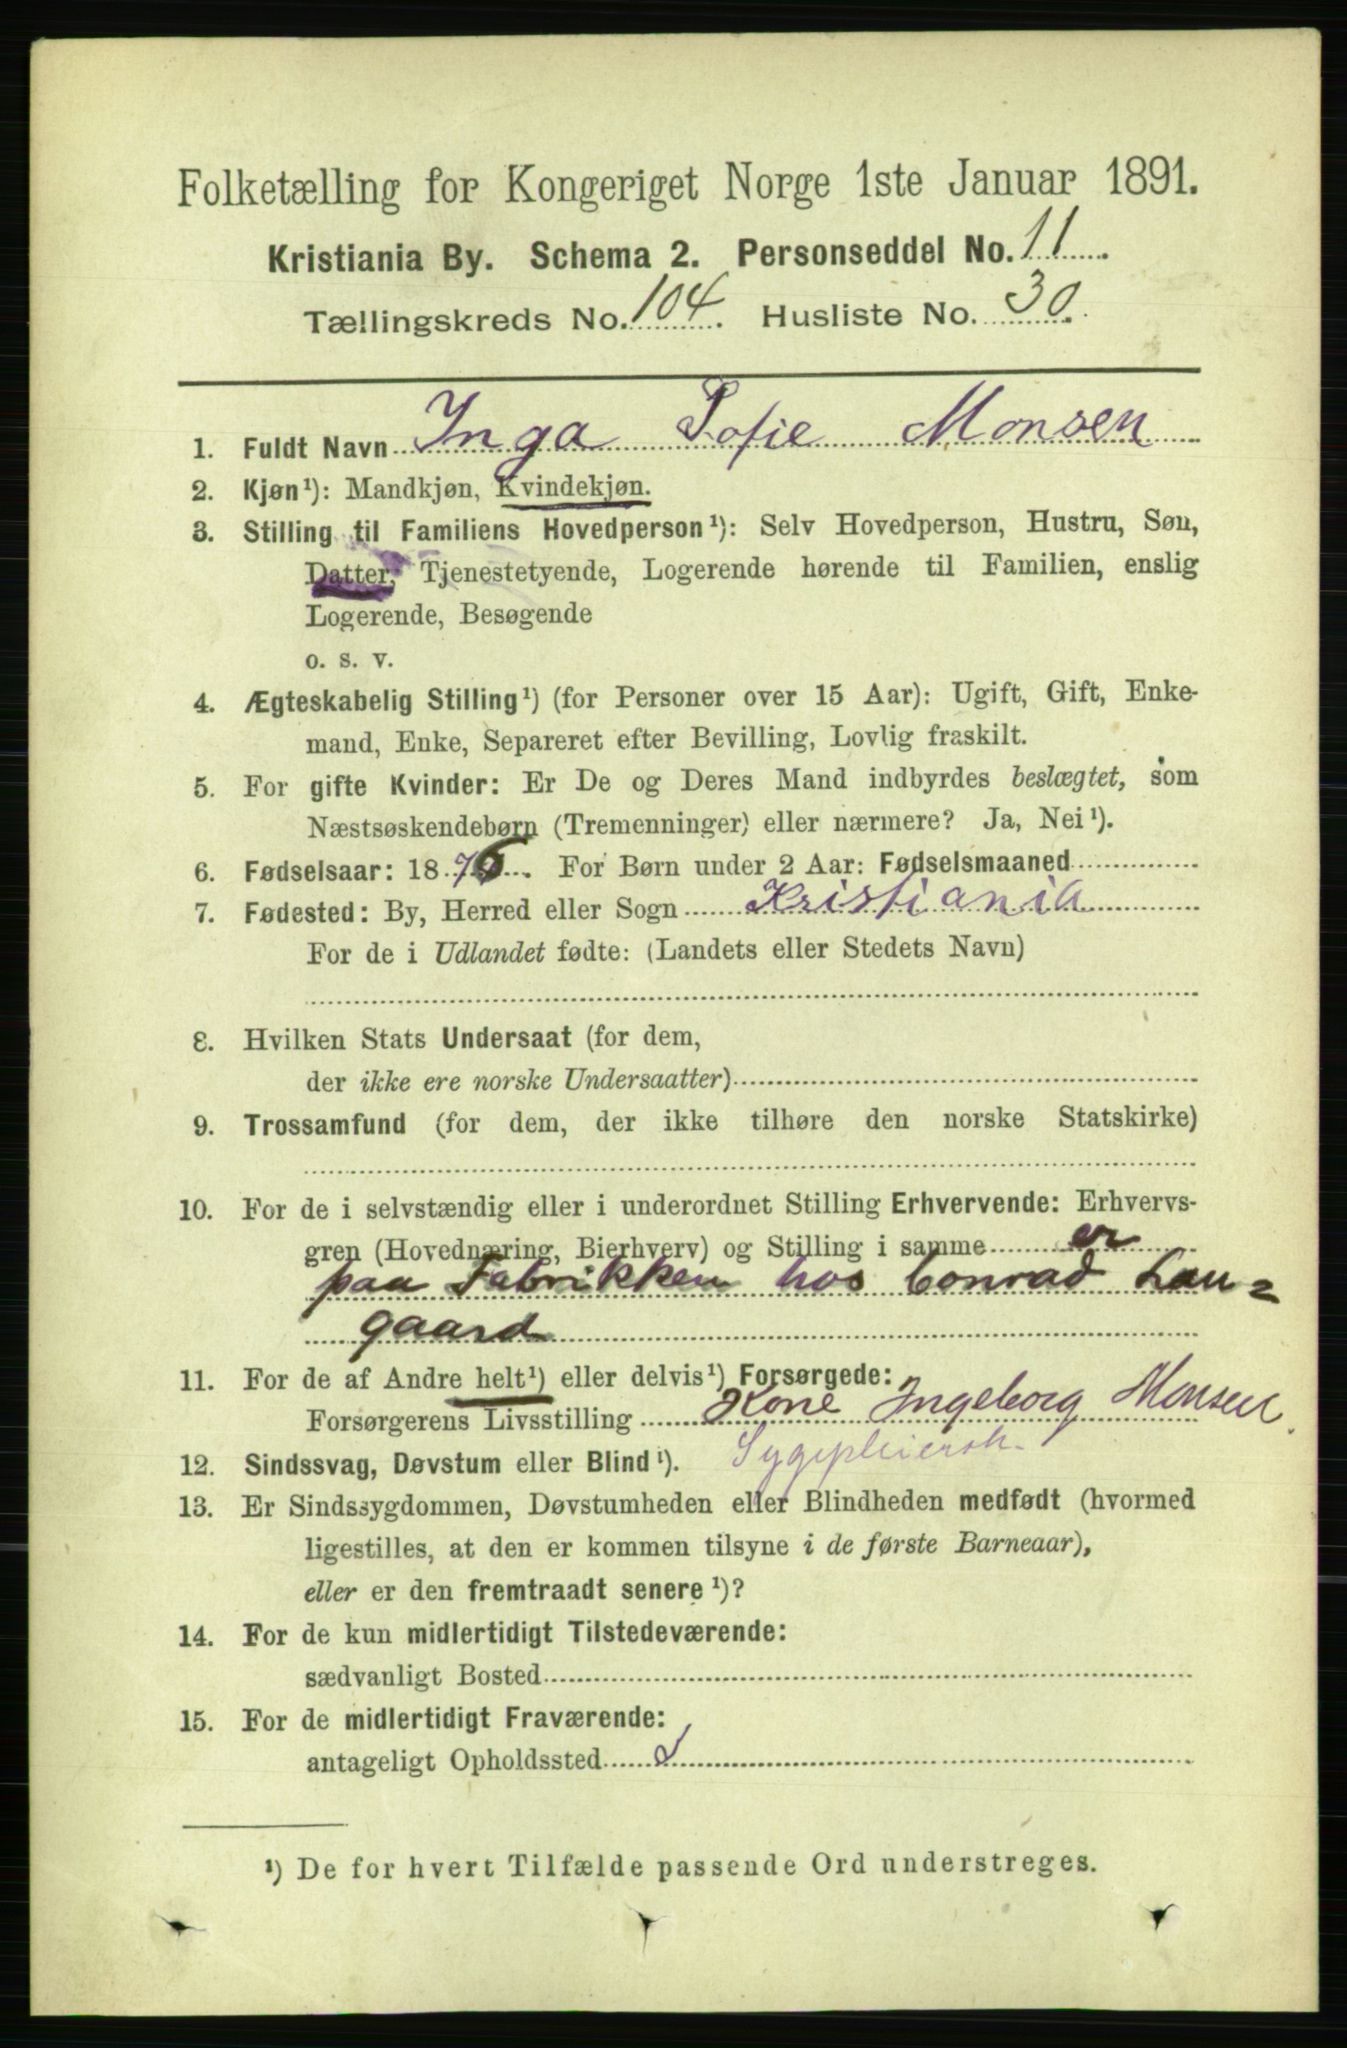 Folketælling for Kongeriget Norge 1ste Januar 1891.
Kristiania By. Schema 2. Personseddel No. 11
Tællingskreds No. 104. Husliste No. 30.
1. Fuldt Navn Inga Sofie Monsen
2. Kjøn¹): Mandkjøn, Kvindekjøn.
3. Stilling til Familiens Hovedperson¹): Selv Hovedperson, Hustru, Søn,
Datter, Tjenestetyende, Logerende hørende til Familien, enslig
Logerende, Besøgende
o. s. v.
4. Ægteskabelig Stilling¹) (for Personer over 15 Aar): Ugift, Gift, Enke-
mand, Enke, Separeret efter Bevilling, Lovlig fraskilt.
5. For gifte Kvinder: Er De og Deres Mand indbyrdes beslægtet, som
Næstsøskendebørn (Tremenninger) eller nærmere? Ja, Nei¹).
6. Fødselsaar: 1876. For Børn under 2 Aar: Fødselsmaaned
7. Fødested: By, Herred eller Sogn Kristiania
For de i Udlandet fødte: (Landets eller Stedets Navn)
8. Hvilken Stats Undersaat (for dem,
der ikke ere norske Undersaatter)
9. Trossamfund (for dem, der ikke tilhøre den norske Statskirke)
10. For de i selvstændig eller i underordnet Stilling Erhvervende: Erhvervs-
gren (Hovednæring, Bierhverv) og Stilling i samme er
paa Fabrikken hos Conrad Lan=
gaard
11. For de af Andre helt¹) eller delvis¹) Forsørgede:
Forsørgerens Livsstilling Kone Ingeborg Monsen
12. Sindssvag, Døvstum eller Blind¹). Sygepleiersk.
13. Er Sindssygdommen, Døvstumheden eller Blindheden medfødt (hvormed
ligestilles, at den er kommen tilsyne i de første Barneaar),
eller er den fremtraadt senere¹)?
14. For de kun midlertidigt Tilstedeværende:
sædvanligt Bosted
15. For de midlertidigt Fraværende:
antageligt Opholdssted
¹) De for hvert Tilfælde passende Ord understreges.